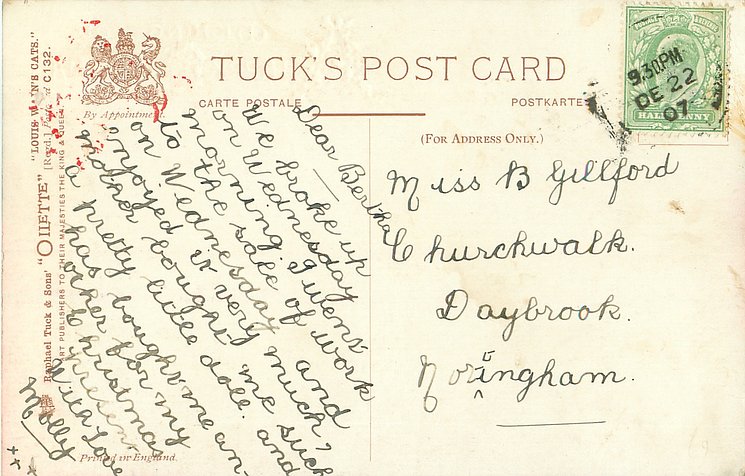 "LOUIS WAIN'S CATS."
Raphael Tuck & Sons' "OILETTE" [Regd.] Postcard C132.
ART PUBLISHERS TO THEIR MAJESTIES THE KING & QUEEN
By Appointment.
TUCK'S POST CARD
CARTE POSTALE POSTKARTE
(FOR ADDRESS ONLY.)
9.30PM
DE 22
07
HALFPENNY
Dear Bertha
We broke up
on Wednesday
morning. I went
to the sale of work
on Wednesday and
enjoyed it very much,
mother bought me such
a pretty little doll. and
has bought me an-
other for my
Christmas
present.
With Love
Molly
Miss B Gillford
Churchwalk.
Daybrook.
Nottingham.
Printed in England.